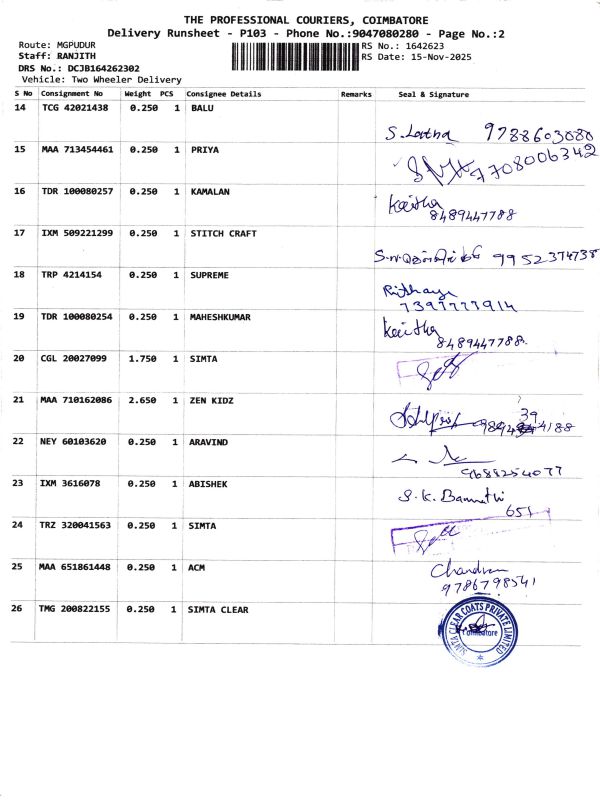 THE PROFESSIONAL COURIERS, COIMBATORE
Delivery Runsheet - P103 - Phone No.:9047080280 - Page No.:2
Route: MGPUDUR
Staff: RANJITH
DRS No.: DCJB164262302
Vehicle: Two Wheeler Delivery
RS No.: 1642623
RS Date: 15-Nov-2025
S No Consignment No Weight PCS Consignee Details Remarks Seal & Signature
14 TCG 42021438 0.250 1 BALU
S. Latha 9788603080
15 MAA 713454461 0.250 1 PRIYA
7708006342
16 TDR 100080257 0.250 1 KAMALAN
Kavitha
8489447788
17 IXM 509221299 0.250 1 STITCH CRAFT
9952374738
18 TRP 4214154 0.250 1 SUPREME
7397773914
19 TDR 100080254 0.250 1 MAHESHKUMAR
Kavitha
8489447788
20 CGL 20027099 1.750 1 SIMTA
21 MAA 710162086 2.650 1 ZEN KIDZ
39
22 NEY 60103620 0.250 1 ARAVIND
9688254077
23 IXM 3616078 0.250 1 ABISHEK
651
24 TRZ 320041563 0.250 1 SIMTA
25 MAA 651861448 0.250 1 ACM
Chandran
9786798541
26 TMG 200822155 0.250 1 SIMTA CLEAR
SIMTA CLEAR COATS PRIVATE LIMITED
Coimbatore